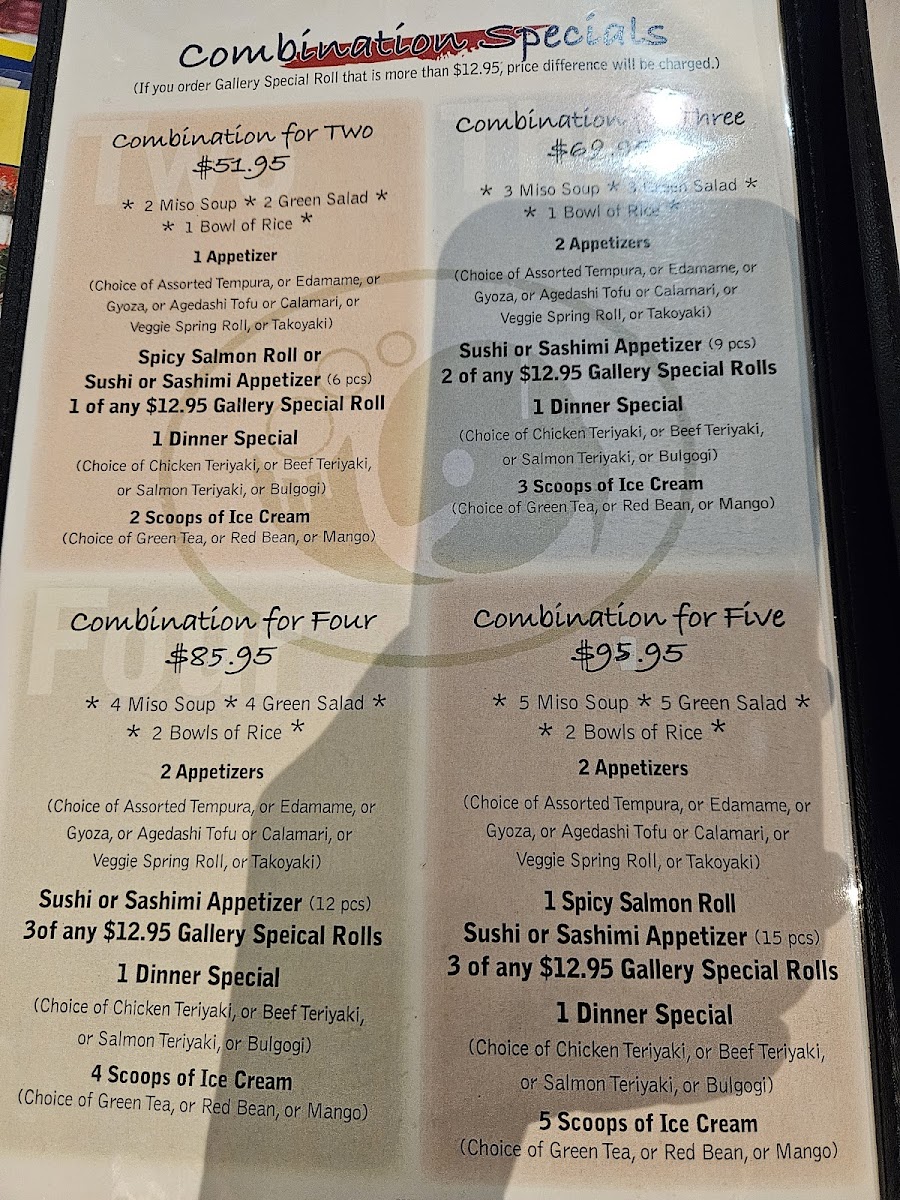 Combination Specials
(If you order Gallery Special Roll that is more than $12.95, price difference will be charged.)
Two
Combination for Two
$51.95
* 2 Miso Soup * 2 Green Salad *
* 1 Bowl of Rice *
1 Appetizer
(Choice of Assorted Tempura, or Edamame, or
Gyoza, or Agedashi Tofu or Calamari, or
Veggie Spring Roll, or Takoyaki)
Spicy Salmon Roll or
Sushi or Sashimi Appetizer (6 pcs)
1 of any $12.95 Gallery Special Roll
1 Dinner Special
(Choice of Chicken Teriyaki, or Beef Teriyaki,
or Salmon Teriyaki, or Bulgogi)
2 Scoops of Ice Cream
(Choice of Green Tea, or Red Bean, or Mango)
Combination for Three
* 3 Miso Soup * 3 Green Salad *
* 1 Bowl of Rice *
2 Appetizers
(Choice of Assorted Tempura, or Edamame, or
Gyoza, or Agedashi Tofu or Calamari, or
Veggie Spring Roll, or Takoyaki)
Sushi or Sashimi Appetizer (9 pcs)
2 of any $12.95 Gallery Special Rolls
1 Dinner Special
(Choice of Chicken Teriyaki, or Beef Teriyaki,
or Salmon Teriyaki, or Bulgogi)
3 Scoops of Ice Cream
(Choice of Green Tea, or Red Bean, or Mango)
Four
Combination for Four
$85.95
* 4 Miso Soup * 4 Green Salad *
* 2 Bowls of Rice *
2 Appetizers
(Choice of Assorted Tempura, or Edamame, or
Gyoza, or Agedashi Tofu or Calamari, or
Veggie Spring Roll, or Takoyaki)
Sushi or Sashimi Appetizer (12 pcs)
3of any $12.95 Gallery Speical Rolls
1 Dinner Special
(Choice of Chicken Teriyaki, or Beef Teriyaki,
or Salmon Teriyaki, or Bulgogi)
4 Scoops of Ice Cream
(Choice of Green Tea, or Red Bean, or Mango)
Combination for Five
$95.95
* 5 Miso Soup * 5 Green Salad *
* 2 Bowls of Rice *
2 Appetizers
(Choice of Assorted Tempura, or Edamame, or
Gyoza, or Agedashi Tofu or Calamari, or
Veggie Spring Roll, or Takoyaki)
1 Spicy Salmon Roll
Sushi or Sashimi Appetizer (15 pcs)
3 of any $12.95 Gallery Special Rolls
1 Dinner Special
(Choice of Chicken Teriyaki, or Beef Teriyaki,
or Salmon Teriyaki, or Bulgogi)
5 Scoops of Ice Cream
(Choice of Green Tea, or Red Bean, or Mango)